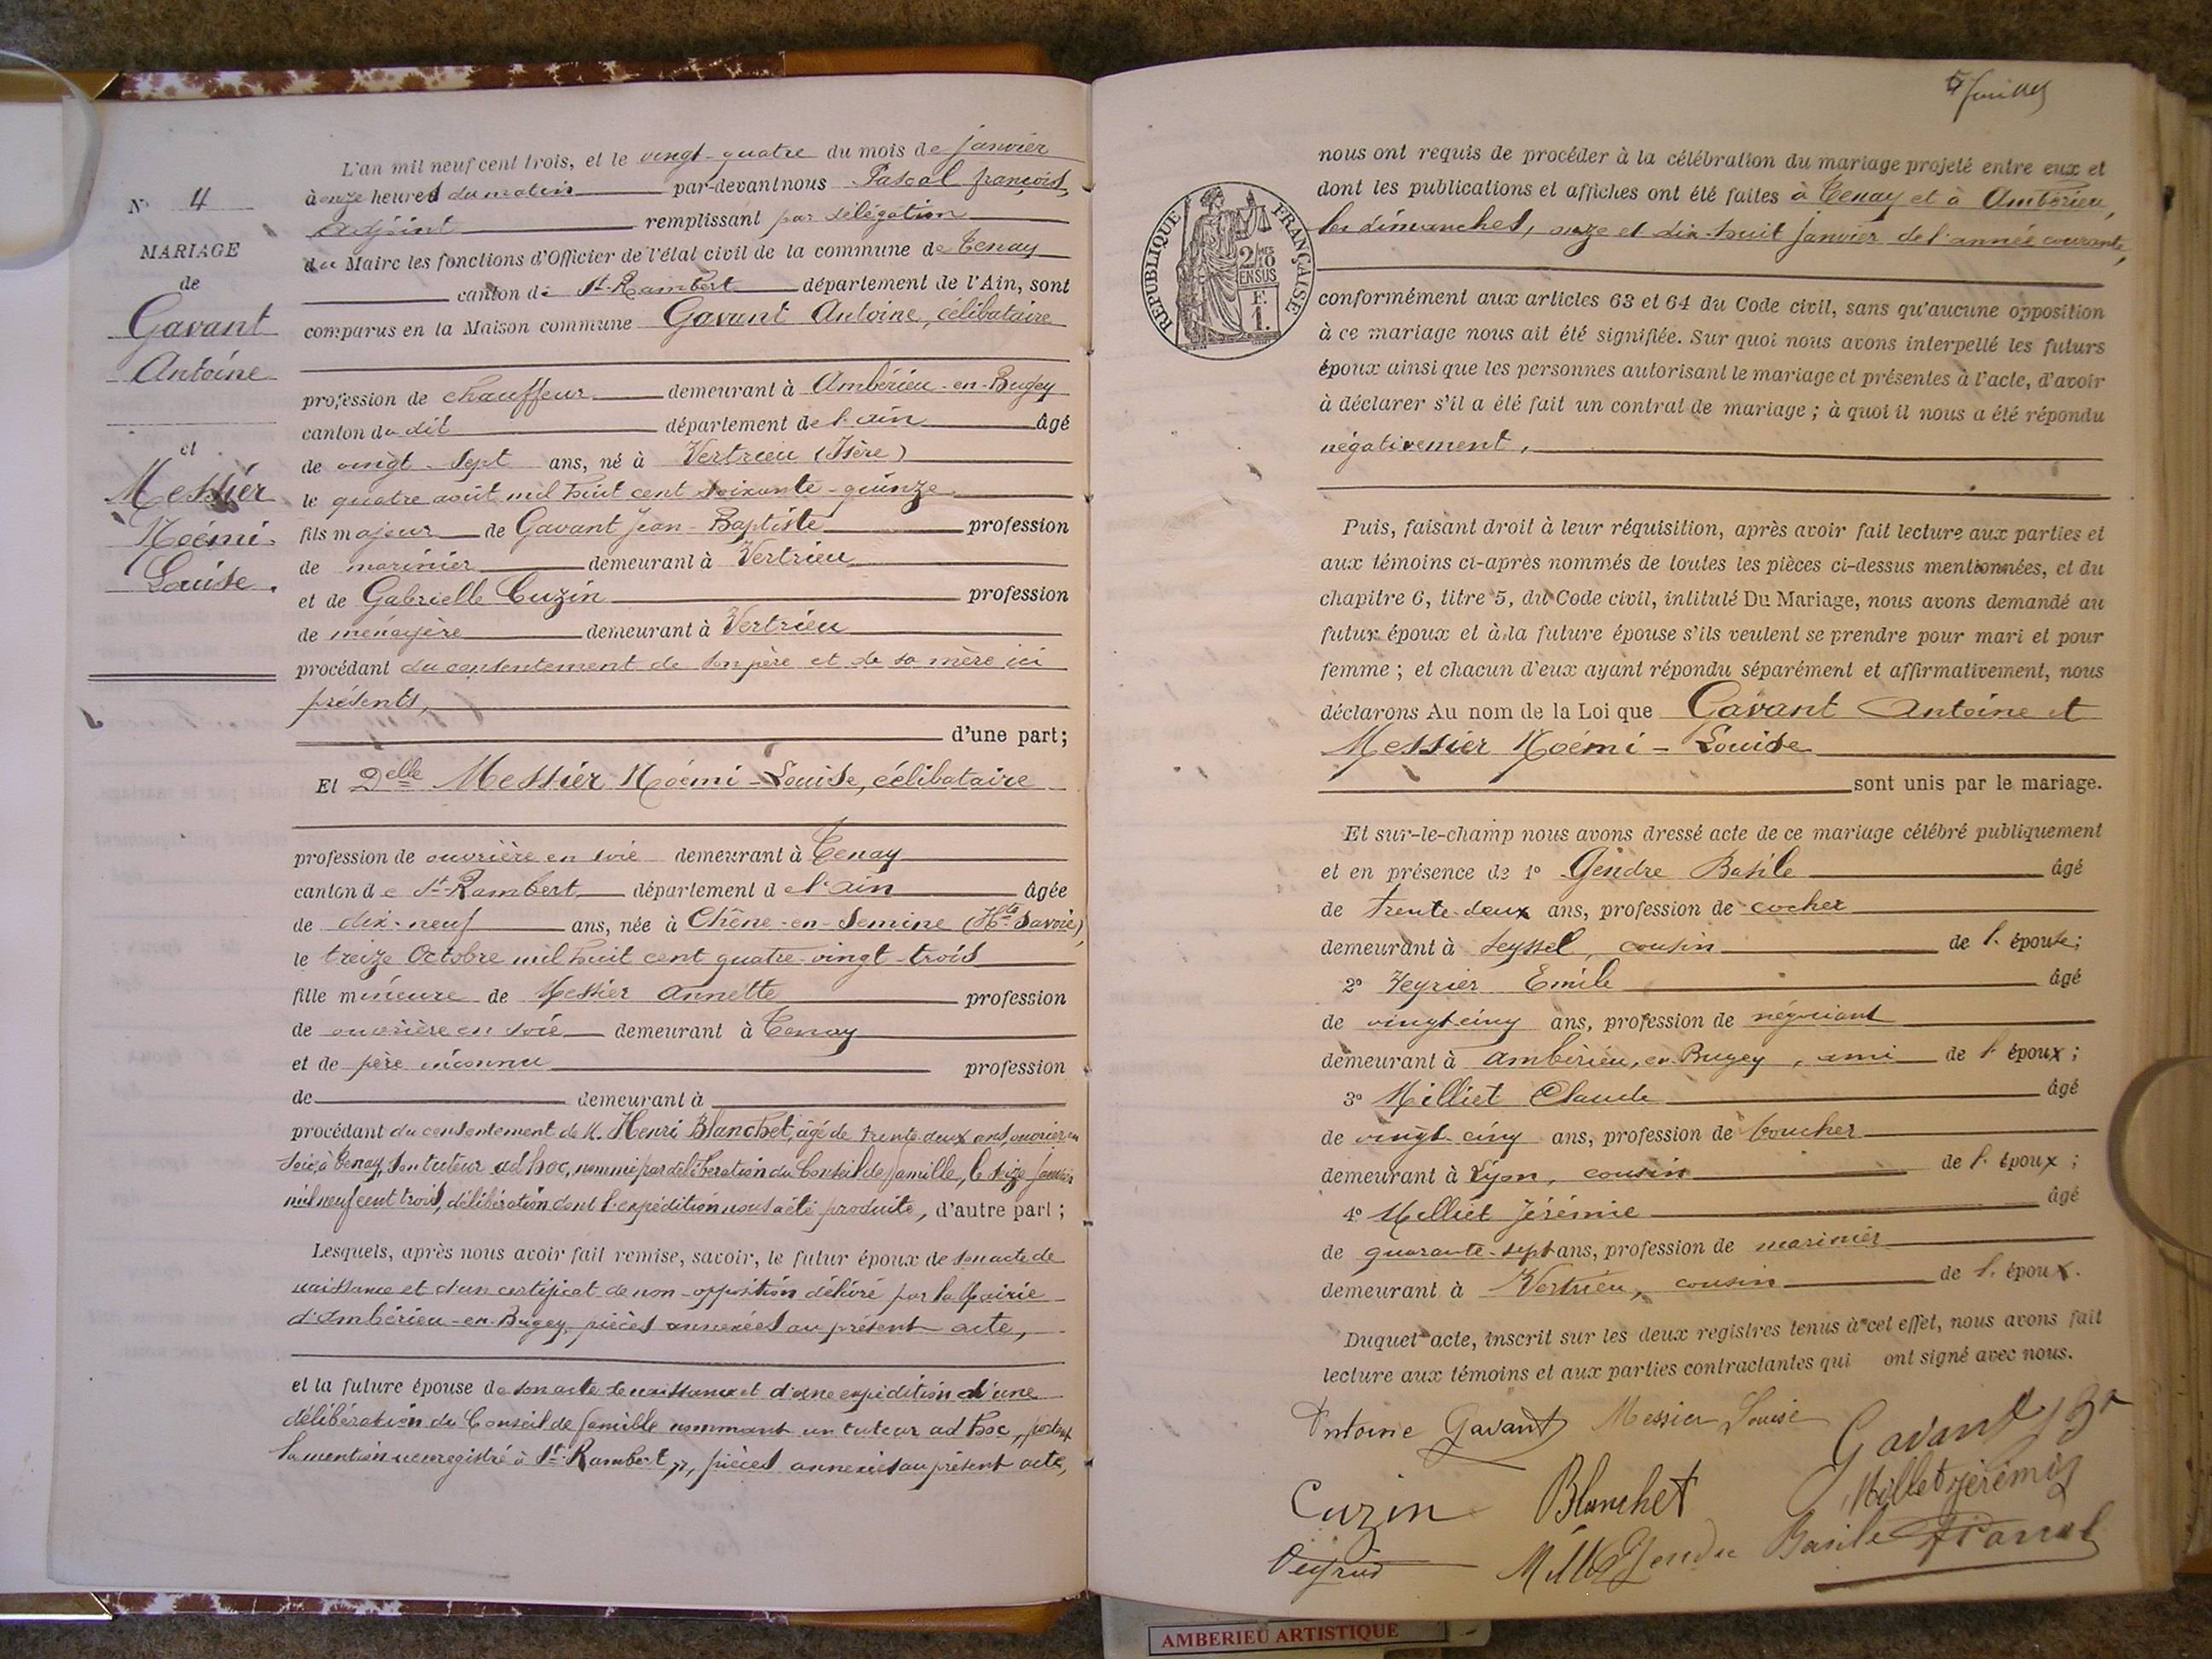 N° 4
MARIAGE
de
Gavant
Antoine
et
Messier
Noémi
Louise.
L'an mil neuf cent trois, et le vingt-quatre du mois de janvier
à onze heures du matin par-devant nous Pascal françois,
adjoint remplissant par délégation
du Maire les fonctions d'Officier de l'état civil de la commune de Tenay
canton de St-Rambert département de l'Ain, sont
comparus en la Maison commune Gavant Antoine, célibataire
profession de chauffeur demeurant à Ambérieu-en-Bugey
canton du dit département de l'ain âgé
de vingt-sept ans, né à Vertrieu (Isère)
le quatre août mil huit cent soixante-quinze
fils majeur de Gavant Jean-Baptiste profession
de marinier demeurant à Vertrieu
et de Gabrielle Cuzin profession
de ménagère demeurant à Vertrieu
procédant du consentement de son père et de sa mère ici
présents,
d'une part;
Et Delle Messier Noémi-Louise, célibataire
profession de ouvrière en soie demeurant à Tenay
canton de St-Rambert département de l'ain âgée
de dix-neuf ans, née à Chêne-en-Semine (Hte Savoie),
le treize Octobre mil huit cent quatre-vingt-trois
fille mineure de Messier Annette profession
de ouvrière en soie demeurant à Tenay
et de père inconnu profession
de demeurant à
procédant du consentement de M. Henri Blanchet, âgé de trente-deux ans, ouvrier en
soie, à Tenay, son tuteur ad hoc, nommé par délibération du Conseil de famille, le seize janvier
mil neuf cent trois, délibération dont l'expédition nous a été produite, d'autre part;
Lesquels, après nous avoir fait remise, savoir, le futur époux de son acte de
naissance et d'un certificat de non-opposition délivré par la Mairie
d'Ambérieu-en-Bugey, pièces annexées au présent acte,
et la future épouse de son acte de naissance et d'une expédition d'une
délibération du Conseil de famille nommant un tuteur ad hoc, portant
la mention "enregistré à St-Rambert", pièces annexées au présent acte,
feuillet
RÉPUBLIQUE FRANÇAISE
2/10
EN SUS
F.
1.
nous ont requis de procéder à la célébration du mariage projeté entre eux et
dont les publications et affiches ont été faites à Tenay et à Ambérieu,
les dimanches, onze et dix-huit janvier de l'année courante,
conformément aux articles 63 et 64 du Code civil, sans qu'aucune opposition
à ce mariage nous ait été signifiée. Sur quoi nous avons interpellé les futurs
époux ainsi que les personnes autorisant le mariage et présentes à l'acte, d'avoir
à déclarer s'il a été fait un contrat de mariage; à quoi il nous a été répondu
négativement,
Puis, faisant droit à leur réquisition, après avoir fait lecture aux parties et
aux témoins ci-après nommés de toutes les pièces ci-dessus mentionnées, et du
chapitre 6, titre 5, du Code civil, intitulé Du Mariage, nous avons demandé au
futur époux et à la future épouse s'ils veulent se prendre pour mari et pour
femme; et chacun d'eux ayant répondu séparément et affirmativement, nous
déclarons Au nom de la Loi que Gavant Antoine et
Messier Noémi-Louise
sont unis par le mariage.
Et sur-le-champ nous avons dressé acte de ce mariage célébré publiquement
et en présence de 1° Gendre Basile âgé
de trente-deux ans, profession de cocher
demeurant à Seyssel, cousin de l'épouse;
2° Veyrier Emile âgé
de vingt cinq ans, profession de négociant
demeurant à Ambérieu-en-Bugey, ami de l'époux;
3° Milliet Claude âgé
de vingt-cinq ans, profession de boucher
demeurant à Lyon, cousin de l'époux;
4° Milliet Jérémie âgé
de quarante-sept ans, profession de marinier
demeurant à Vertrieu, cousin de l'époux.
Duquel acte, inscrit sur les deux registres tenus à cet effet, nous avons fait
lecture aux témoins et aux parties contractantes qui ont signé avec nous.
Antoine Gavant Messier Louise Gavant JBte
Cuzin Blanchet Millet Jérémie
Gendre Basile Pascal
AMBERIEU ARTISTIQUE